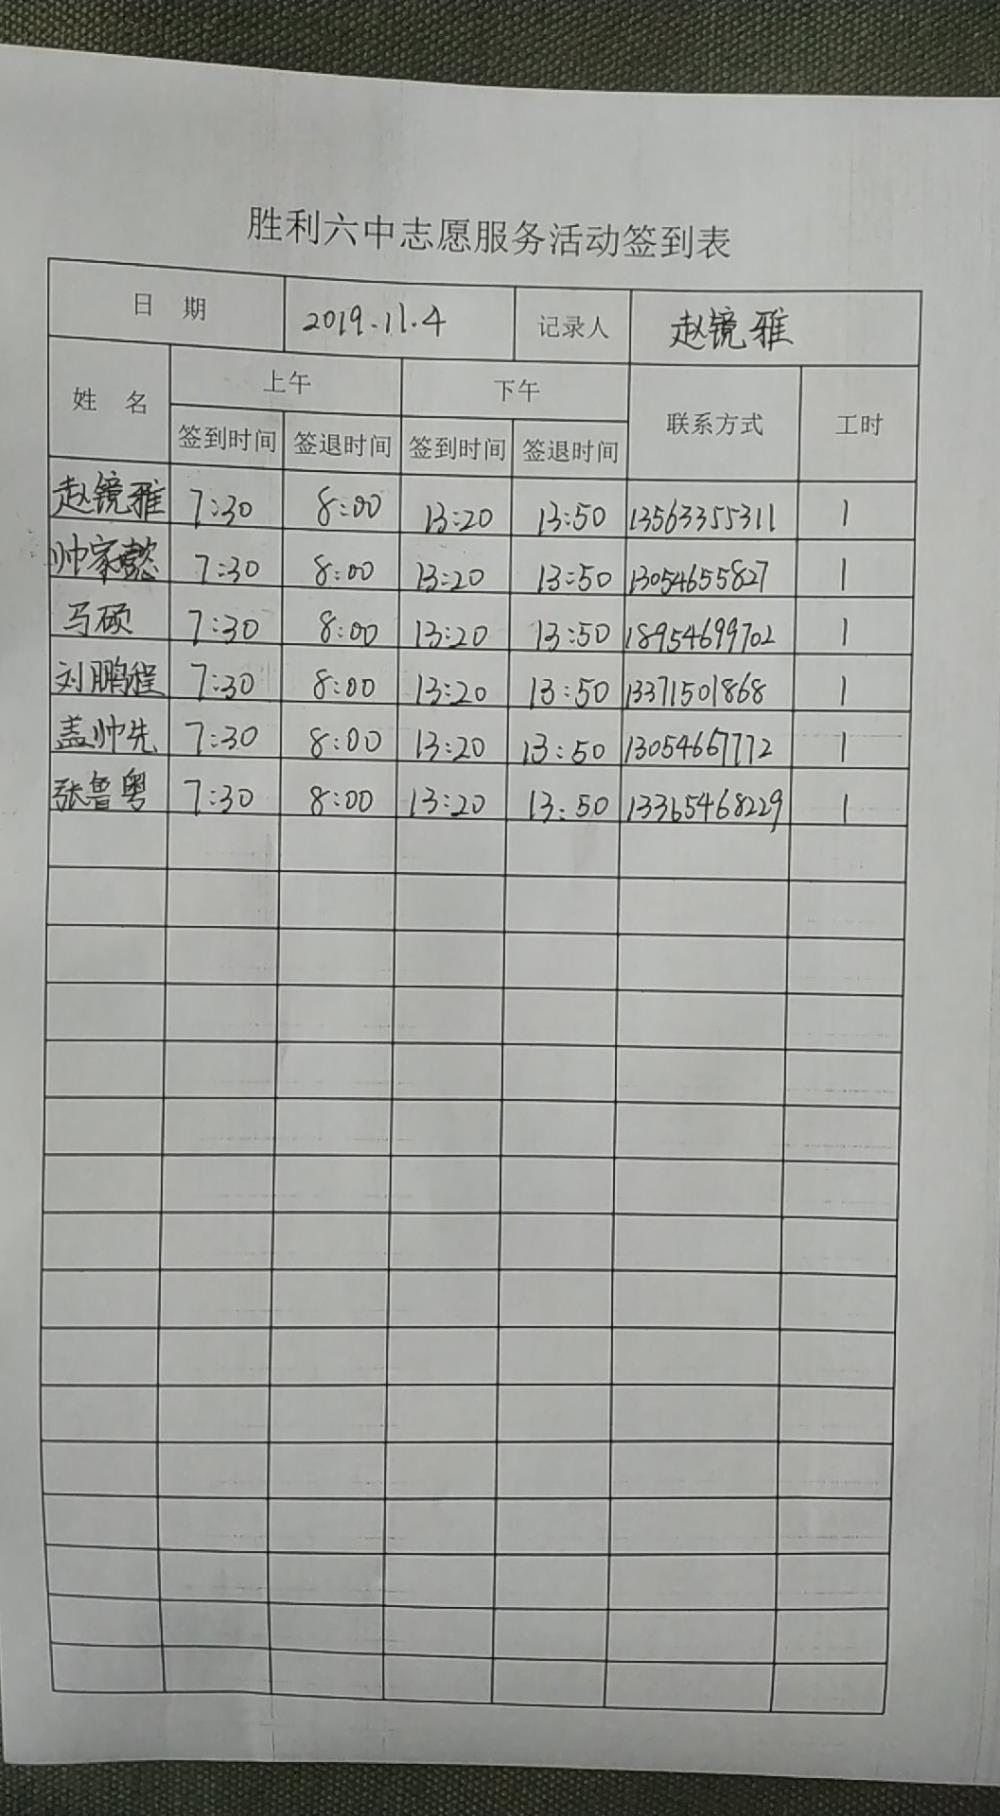 胜利六中志愿服务活动签到表
日 期 2019.11.4 记录人 赵镜雅
姓 名 上午 下午 联系方式 工时
签到时间 签退时间 签到时间 签退时间
赵镜雅 7:30 8:00 13:20 13:50 13563355311 1
帅家懿 7:30 8:00 13:20 13:50 13054655827 1
马硕 7:30 8:00 13:20 13:50 18954699702 1
刘鹏程 7:30 8:00 13:20 13:50 13371501868 1
盖帅先 7:30 8:00 13:20 13:50 13054667772 1
张鲁粤 7:30 8:00 13:20 13:50 13365468229 1